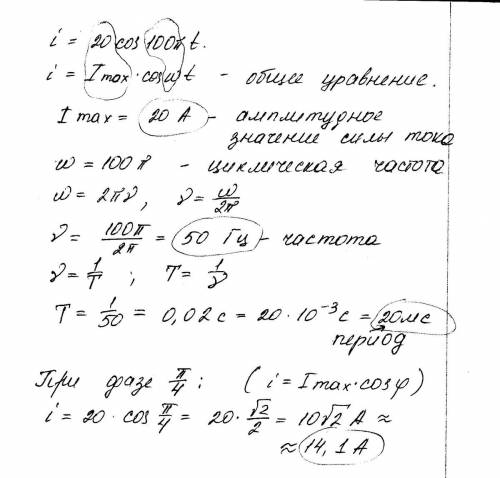 i = 20 cos 100π t.
i = Imax · cos ωt - общее уравнение.
Imax = 20 А - амплитудное
значение силы тока
ω = 100 π - циклическая частота
ω = 2πν, ν = ω/2π
ν = 100π/2π = 50 Гц - частота
ν = 1/T ; T = 1/ν
T = 1/50 = 0,02 с = 20 · 10⁻³ с = 20мс
период
При фазе π/4 : ( i = Imax · cos φ )
i = 20 · cos π/4 = 20 · √2/2 = 10√2 А ≈
≈ 14,1 А